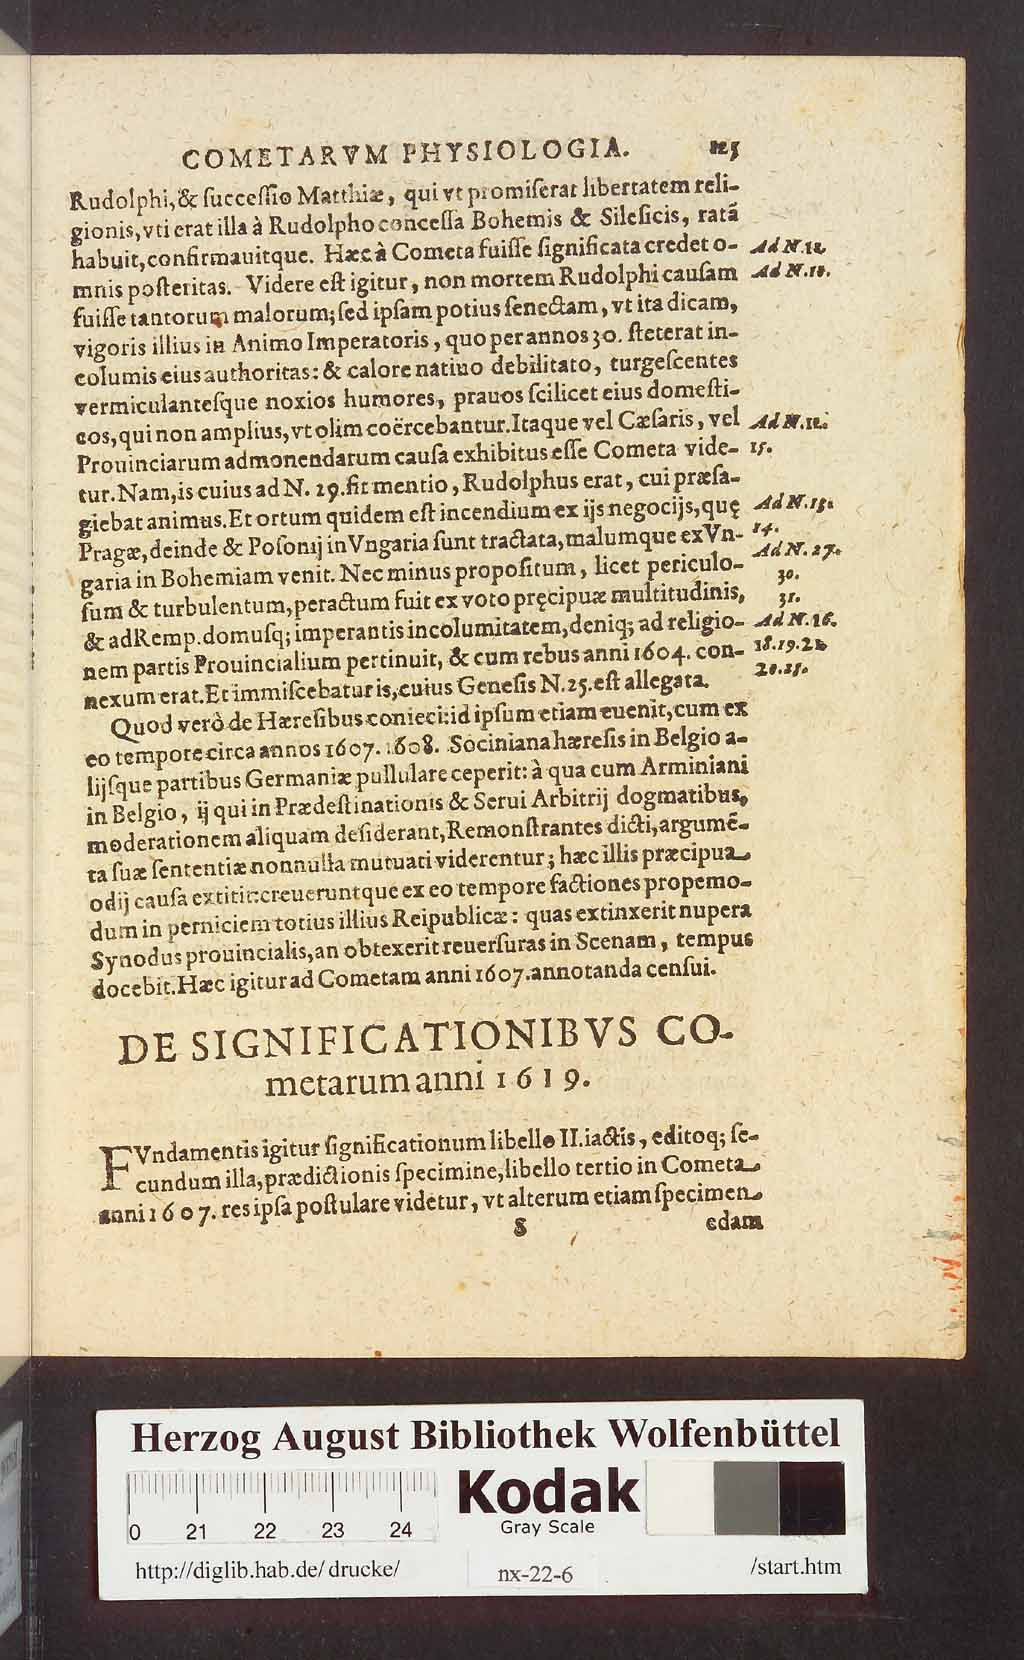 COMETARVM PHYSIOLOGIA. 125
Rudolphi, & ſucceſſio Matthiæ, qui vt promiſerat libertatem reli-
gionis, vti erat illa à Rudolpho conceſſa Bohemis & Sileſicis, ratā
habuit, confirmauitque. Hæc à Cometa fuiſſe ſignificata credet o-
Ad N. 12.
mnis poſteritas. Videre eſt igitur, non mortem Rudolphi cauſam
Ad N. 18.
fuiſſe tantorum malorum; ſed ipſam potius ſenectam, vt ita dicam,
vigoris illius in Animo Imperatoris, quo per annos 30. ſteterat in-
columis eius authoritas: & calore natiuo debilitato, turgeſcentes
vermiculanteſque noxios humores, prauos ſcilicet eius domeſti-
cos, qui non amplius, vt olim coërcebantur. Itaque vel Cæſaris, vel
Ad N. 12.
Prouinciarum admonendarum cauſa exhibitus eſſe Cometa vide-
15.
tur. Nam, is cuius ad N. 29. fit mentio, Rudolphus erat, cui præſa-
giebat animus. Et ortum quidem eſt incendium ex ijs negocijs, quę
Ad N. 13.
Pragæ, deinde & Poſonij in Vngaria ſunt tractata, malumque ex Vn-
14.
Ad N. 27.
garia in Bohemiam venit. Nec minus propoſitum, licet periculo-
30.
ſum & turbulentum, peractum fuit ex voto pręcipuæ multitudinis,
31.
& ad Remp. domuſq; imperantis incolumitatem, deniq; ad religio-
Ad N. 16.
nem partis Prouincialium pertinuit, & cum rebus anni 1604. con-
18. 19. 21.
nexum erat. Et immiſcebatur is, cuius Geneſis N. 25. eſt allegata.
20. 25.
Quod verò de Hæreſibus conieci: id ipſum etiam euenit, cum ex
eo tempore circa annos 1607. 1608. Sociniana hæreſis in Belgio a-
lijſque partibus Germaniæ pullulare ceperit: à qua cum Arminiani
in Belgio, ij qui in Prædeſtinationis & Serui Arbitrij dogmatibus,
moderationem aliquam deſiderant, Remonſtrantes dicti, argumē-
ta ſuæ ſententiæ nonnulla mutuati viderentur; hæc illis præcipua
odij cauſa extitit: creueruntque ex eo tempore factiones propemo-
dum in perniciem totius illius Reipublicæ: quas extinxerit nupera
Synodus prouincialis, an obtexerit reuerſuras in Scenam, tempus
docebit. Hæc igitur ad Cometam anni 1607. annotanda cenſui.
DE SIGNIFICATIONIBVS CO-
metarum anni 1619.
FVndamentis igitur ſignificationum libello II. iactis, editoq; ſe-
cundum illa, prædictionis ſpecimine, libello tertio in Cometa
anni 1607. res ipſa poſtulare videtur, vt alterum etiam ſpecimen
S edam
Herzog August Bibliothek Wolfenbüttel
0 21 22 23 24
Kodak
Gray Scale
http://diglib.hab.de/ drucke/
nx-22-6
/start.htm